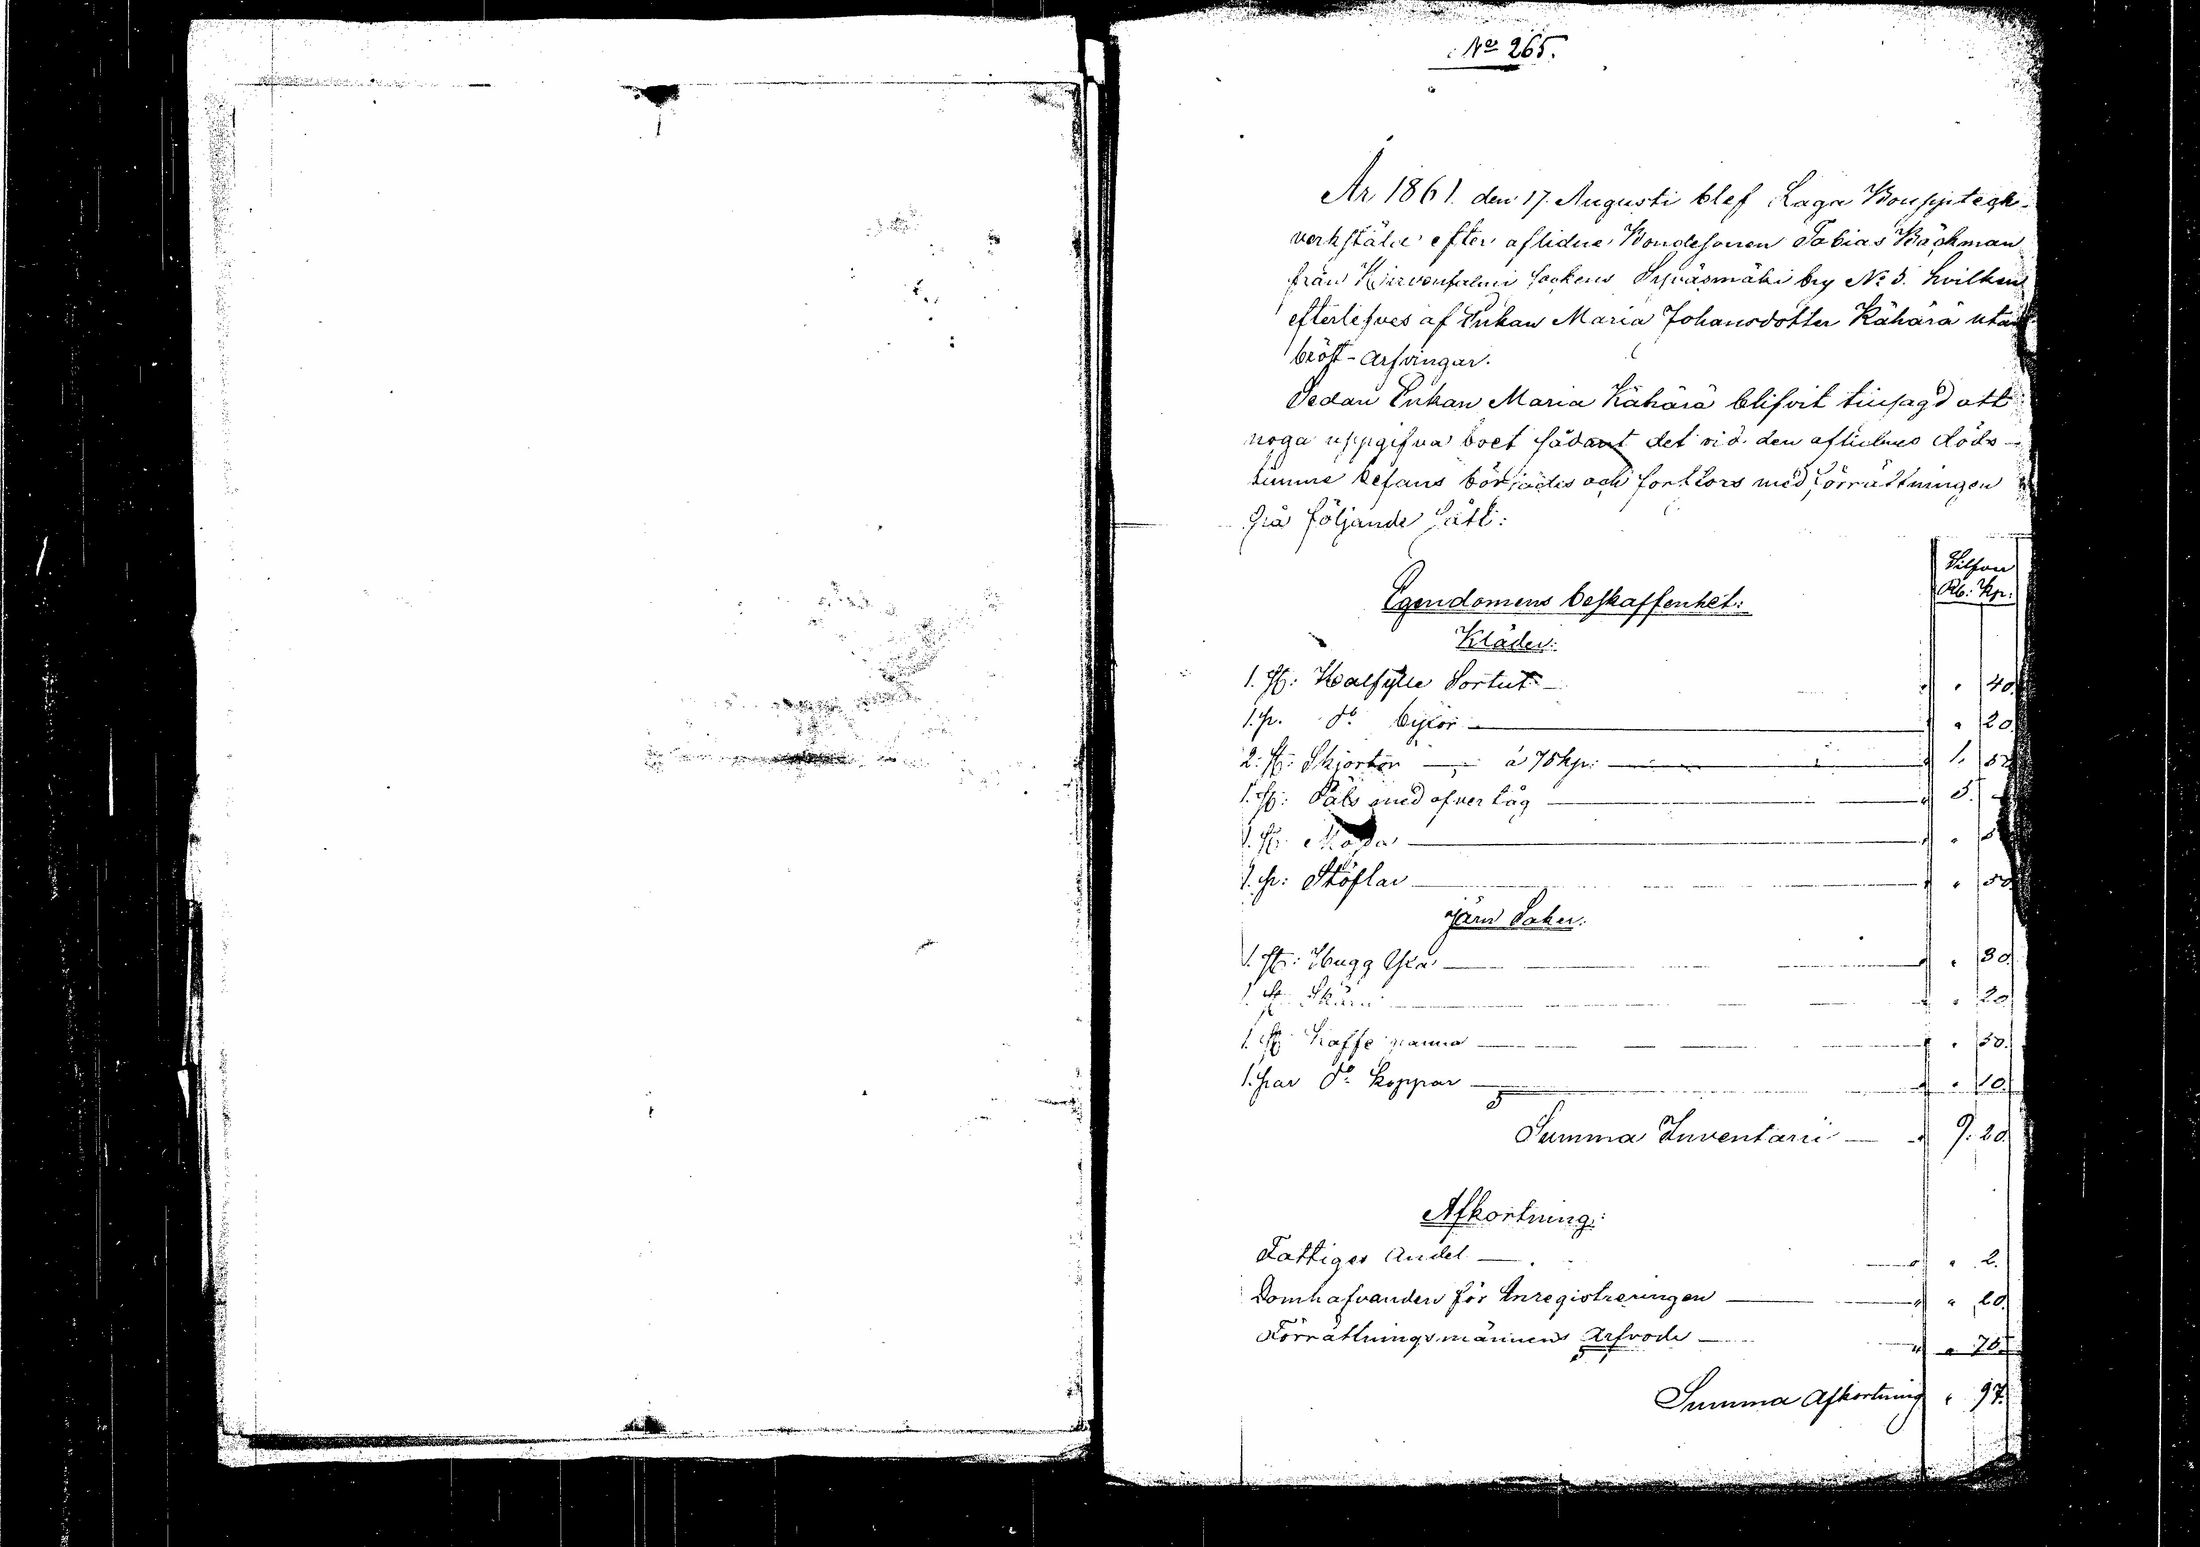 No 265.
År 1861. den 17. Augusti blef Laga Bouppteck-
verkstäld efter aflidne Bondesonen Tobias Bäckman
från Hirvensalmi sockens Syväsmäki by No 5. hvilken
efterlefves af Enkan Maria Johansdotter Kähärä utan
bröst-arfvingar.
Sedan Enkan Maria Kähärä blifvit tillsagd att
noga uppgifva boet sådant det vid den aflidnes döds-
timme befans börjades och fortfors med förrättningen
på följande sätt:
Silfver
Egendomens beskaffenhet: Rb: Kp:
Kläder:
1. st: Halfylle Sortut — " " 40.
1. pr. do byxor — " " 20.
2. st: Skjortor — á 75 kp: — " 1. 50
1. st: Päls med öfvertåg — " 5. -
1. st: Mössa — " "
1. pr: Stöflar — " " 50
järn Saker:
1. st: Hugg Yxa — " " 30.
1. st: Skära — " " 20
1. st: Kaffe panna — " " 50.
1. par do koppar — " " 10.
Summa Inventarii — " 9. 20
Afkortning:
Fattiges Andel — " " 2.
Domhafvanden för Inregistreringen — " " 20.
Förrättningsmännens Arfvode — " " 75.
Summa Afkortning " 97.